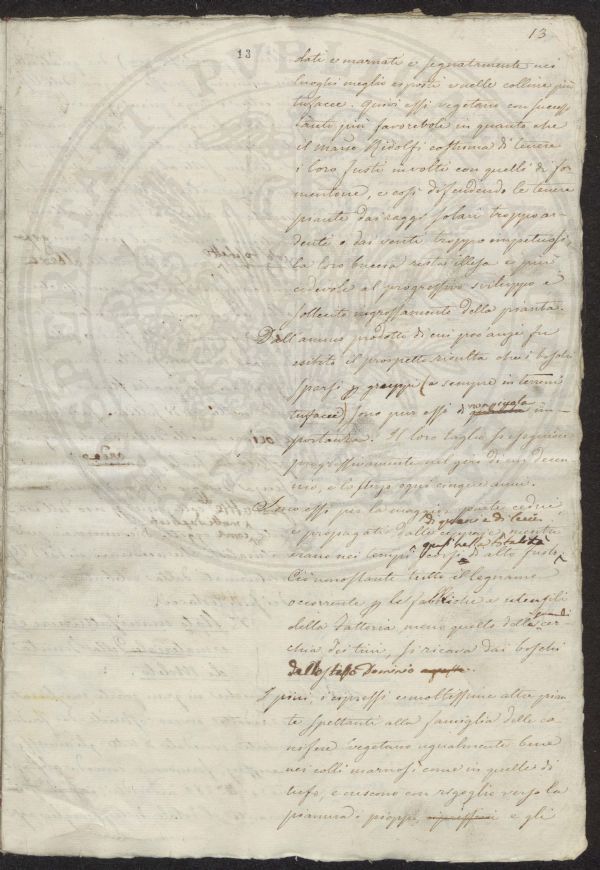 13
13
dati e marnati e segnatamente nei
luoghi meglio esposti e nelle colline più
tufacee. Quivi essi vegetano con success
tanto più favorevole in quanto che
il March. Ridolfi costuma di tenere
i loro fusti involti con quelli di for
mentone, e così difendendo le tenere
piante dai raggi solari troppo ar
denti e dai venti troppo impetuosi,
la loro buccia resta illesa e più
cedevole al progressivo sviluppo e
sollecito ingrossamento della pianta.
Dall'annuo prodotto di cui poc'anzi fu
esibito il prospetto risulta che i boschi
sparsi p gruppi (e sempre in terreni
tufacei), sono pur essi di non piccola im-
portanza. Il loro taglio si eseguisce
progressivamente nel giro di un decen
nio, e lo stesso ogni cinque anni.
Sono essi per la maggior parte cedui,
di querce e di lecci
e propagati dalle ceppaie, mentre
quasi nella totalità
erano nei tempi scorsi di alto fusto.
Ciò nonostante tutto il legname
occorrente p le fabbriche e utensili
grandi
della Fattoria, meno quello delle cer
chia dei tini, si ricava dai boschi
dello stesso Dominio
I pini, i cipressi e moltissime altre pian
te spettanti alla famiglia delle co
nifere vegetano ugualmente bene
nei colli marnosi come in quelli di
tufo, e crescono con rigoglio verso la
pianura i pioppi, e gli